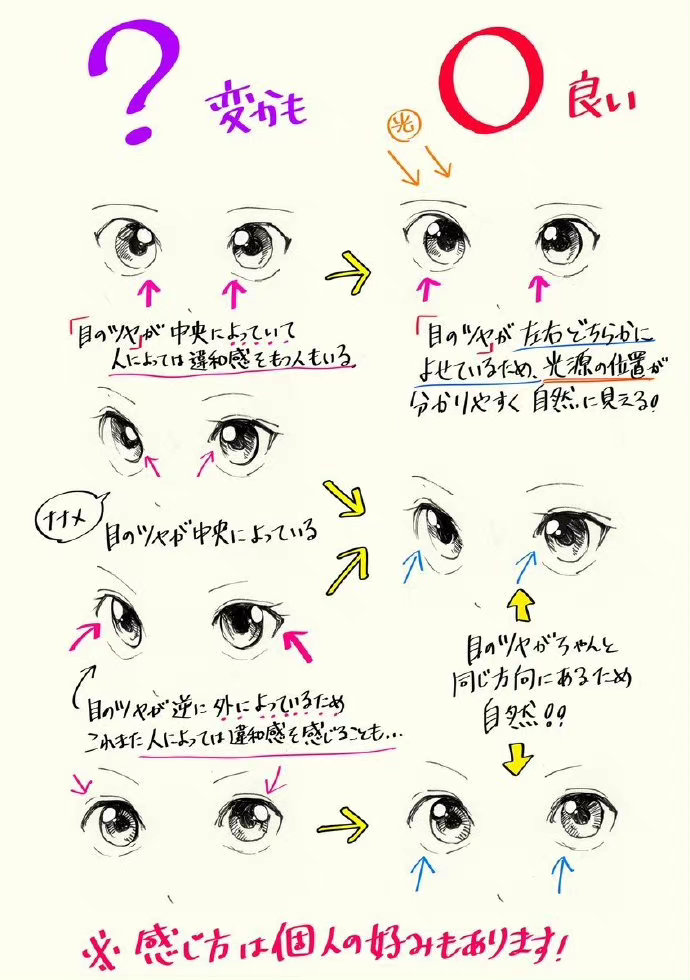 ? 変かも
○ 良い
光
「目のツヤ」が中央によっていて
人によっては違和感をもつ人もいる
「目のツヤ」が左右どちらかに
よせているため、光源の位置が
分かりやすく自然に見える!
ナナメ
目のツヤが中央によっている
目のツヤがちゃんと
同じ方向にあるため
自然!!
目のツヤが逆に外によっているため
これまた人によっては違和感を感じることも...
※感じ方は個人の好みもあります!